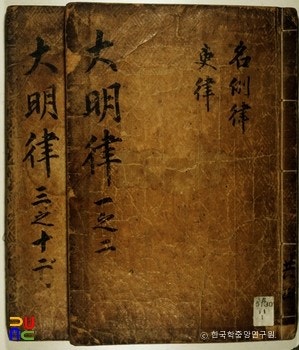 名例律
吏律
大明律 一之二
大明律 三之十二
ⓒ 한국학중앙연구원